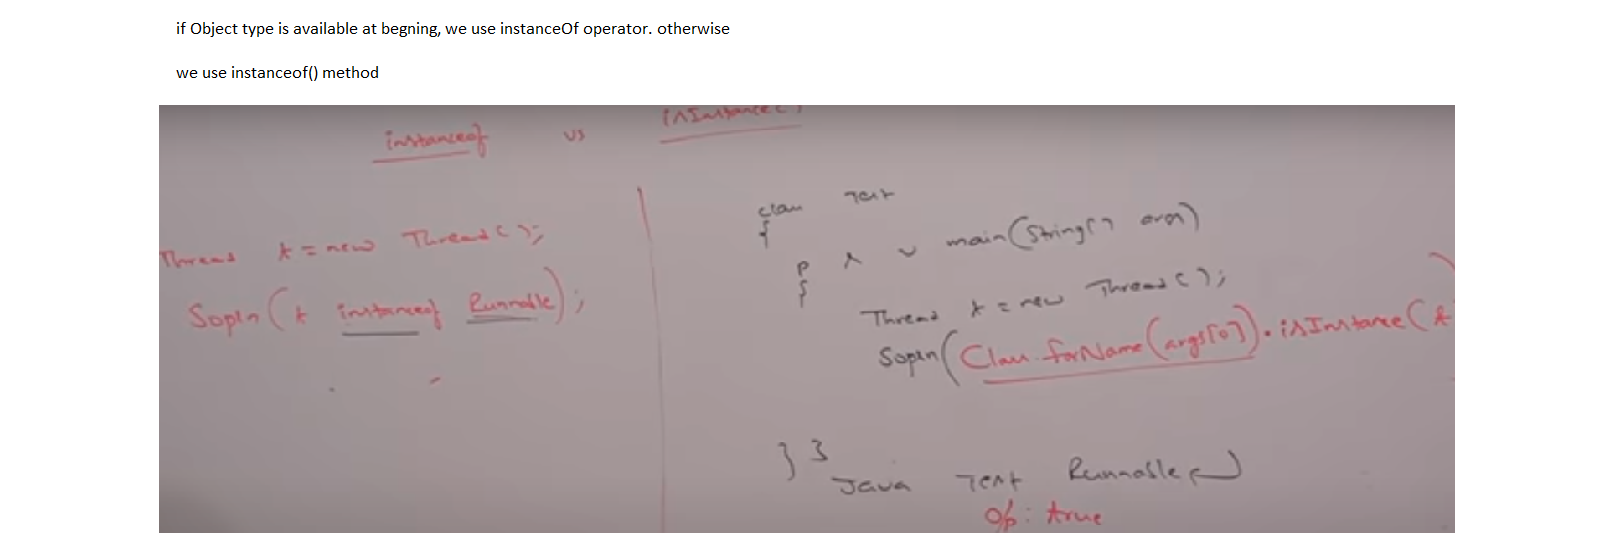 if Object type is available at begning, we use instanceOf operator. otherwise
we use instanceof() method
instanceof vs isInstance( )
Thread t = new Thread( );
Sopln(t instanceof Runnable);
class Test
{
p s v main(String[] args)
{
Thread t = new Thread( );
Sopln(Class.forName(args[0]).isInstance(t
} }
Java Test Runnable
o/p: true